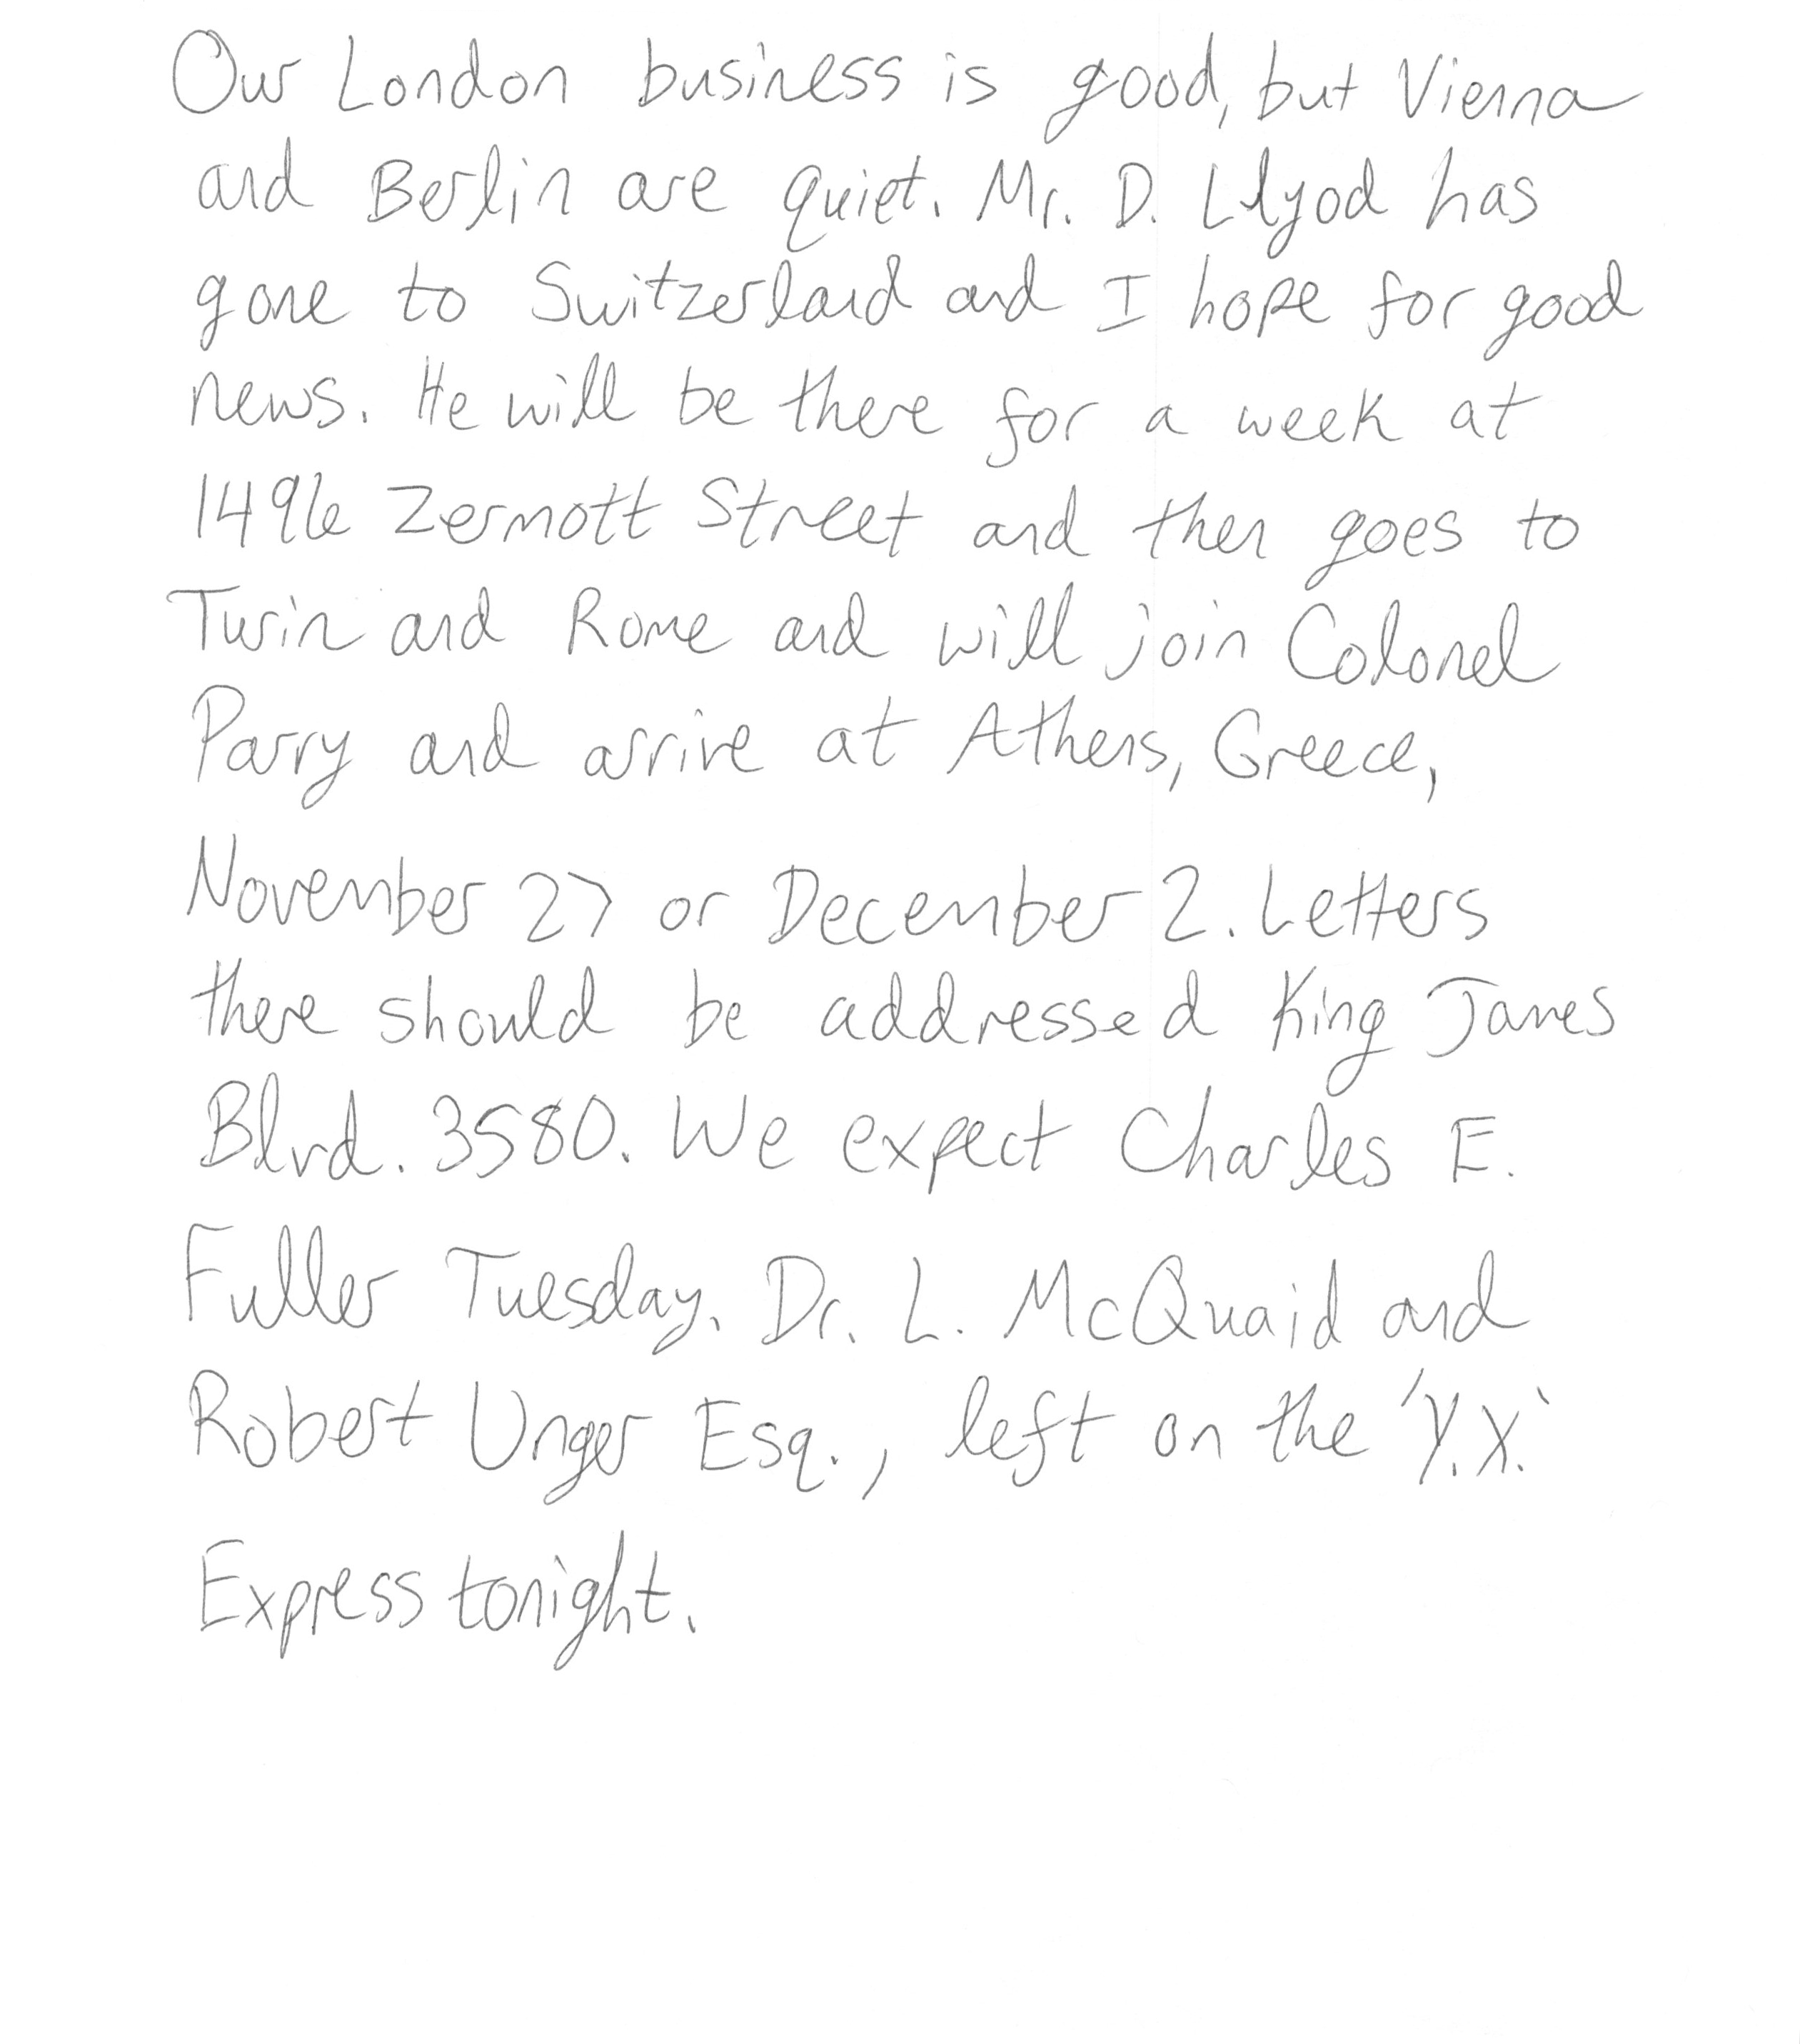 Our London business is good, but Vienna
and Berlin are quiet. Mr. D. Llyod has
gone to Switzerland and I hope for good
news. He will be there for a week at
1496 Zermott Street and then goes to
Turin and Rome and will join Colonel
Parry and arrive at Athens, Greece,
November 27 or December 2. Letters
there should be addressed King James
Blvd. 3580. We expect Charles E.
Fuller Tuesday. Dr. L. McQuaid and
Robert Unger Esq., left on the 'Y.X.'
Express tonight.